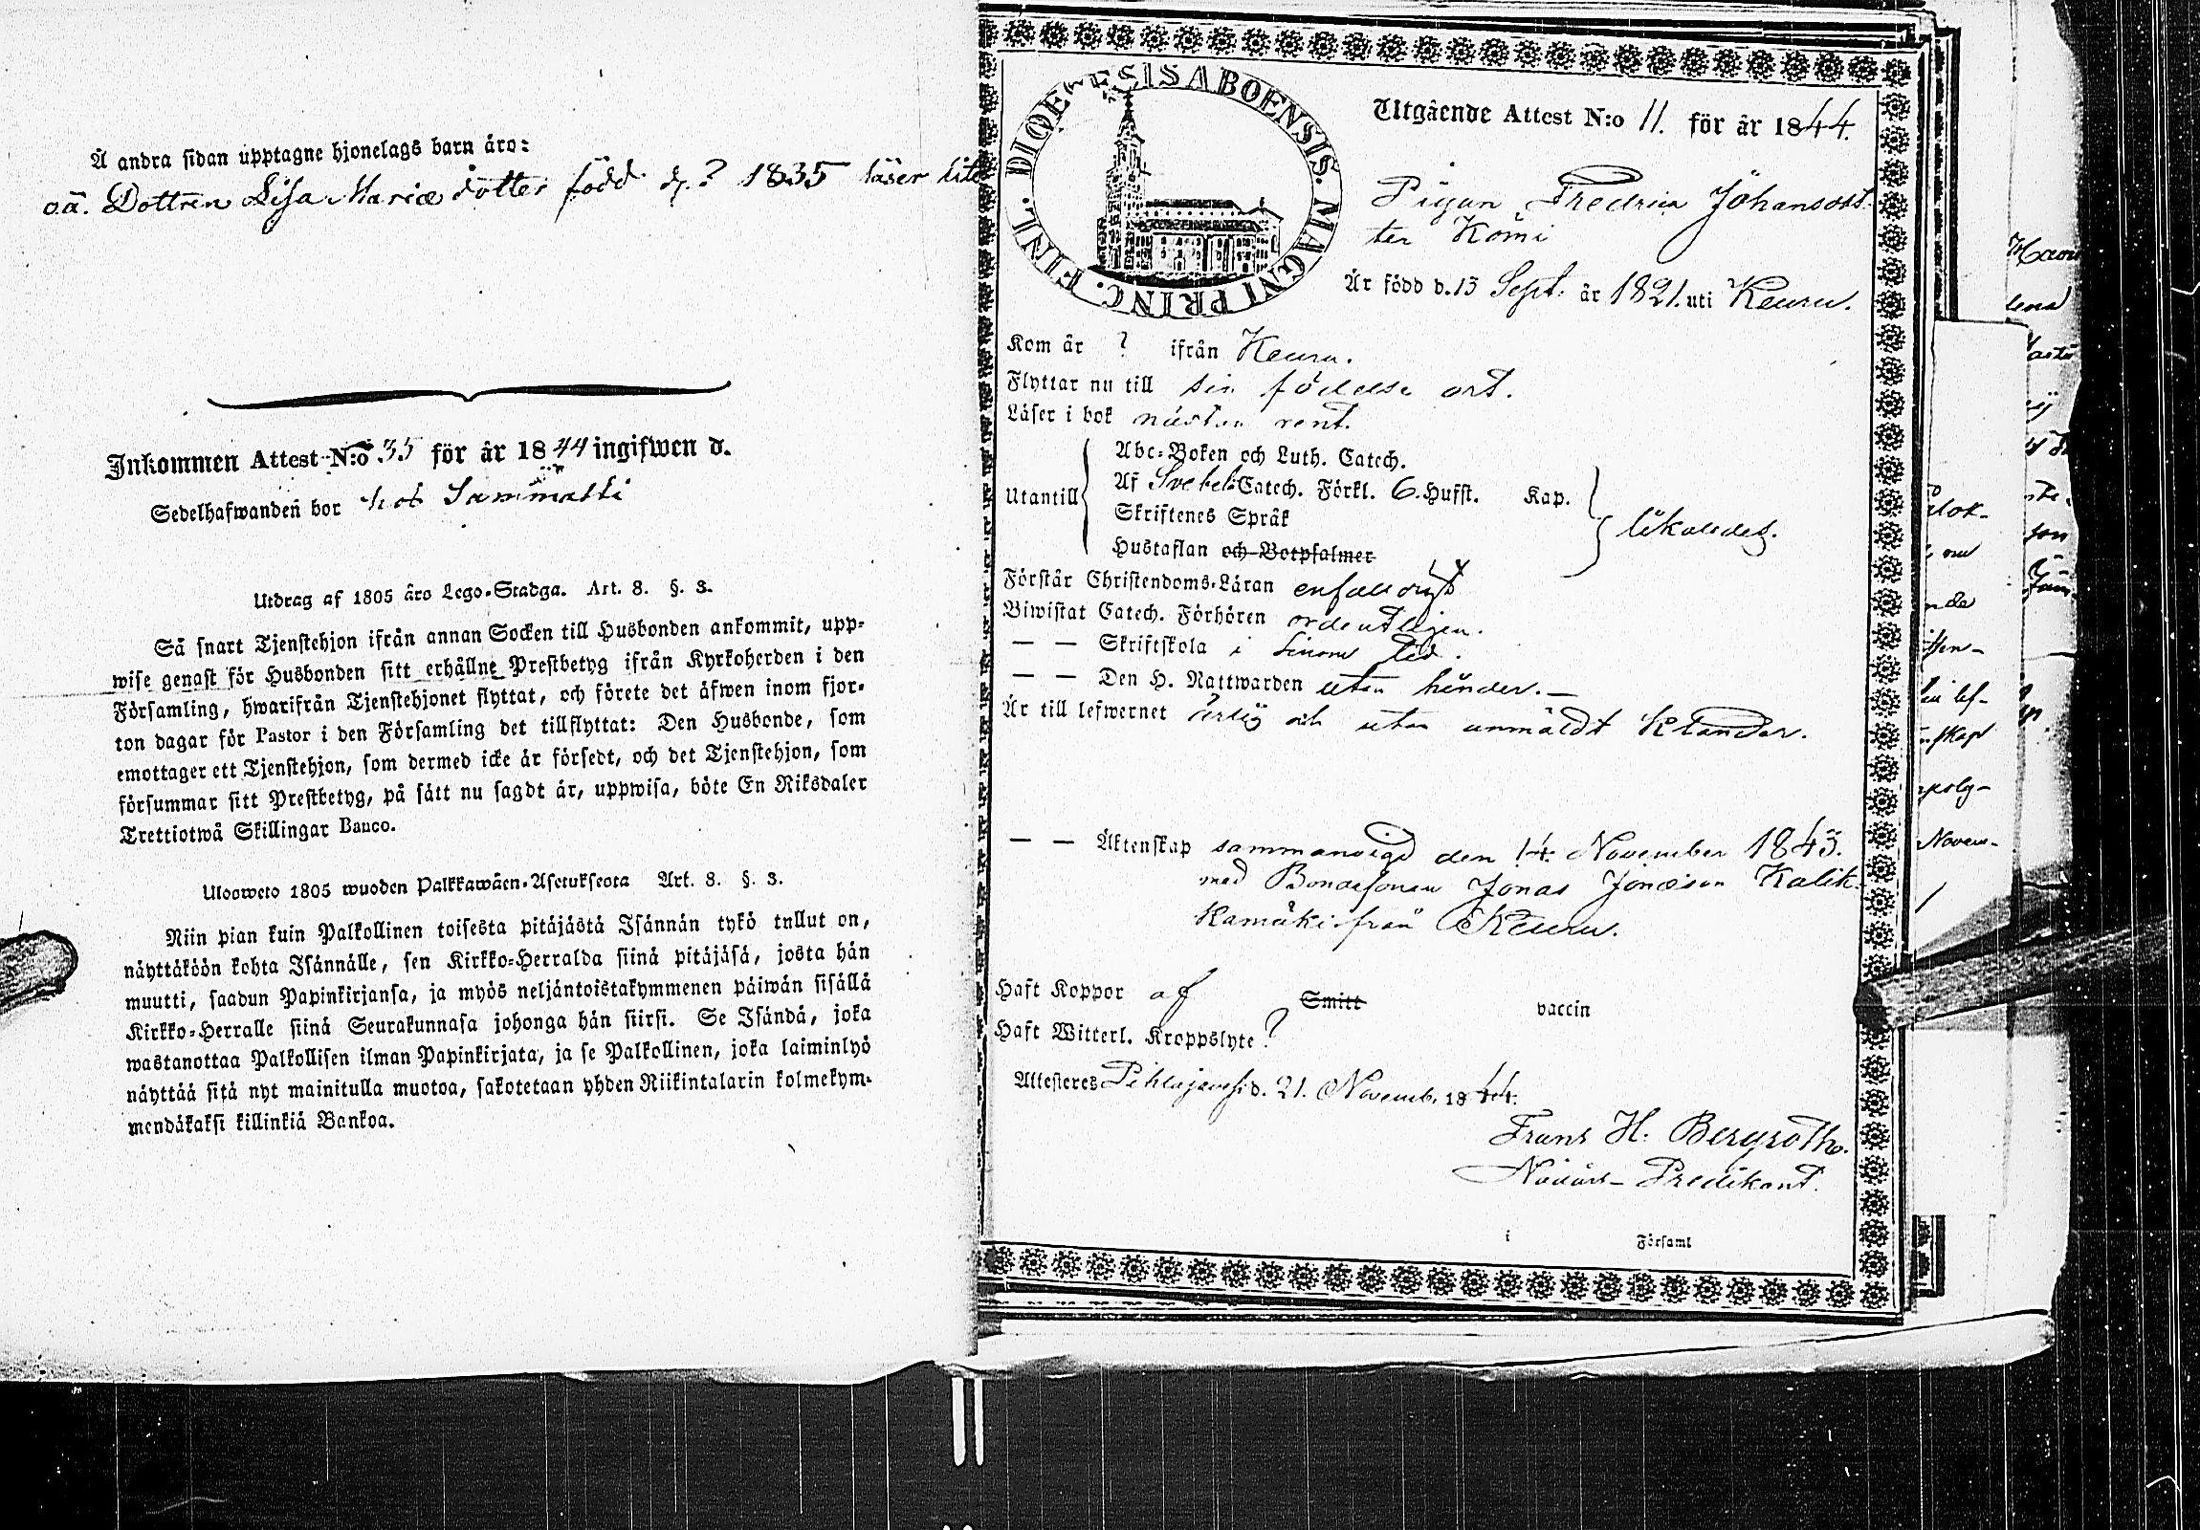 Å andra sidan upptagne hjonelags barn äro:
o.ä. Dottren Lisa Maria dotter född d. ? 1835 läser lite
Inkommen Attest N:o 35 för år 1844 ingifwen d.
Sedelhafwanden bor hos Sammatti
Utdrag af 1805 års Lego-Stadga. Art. 8. §. 3.
Så snart Tjenstehjon ifrån annan Socken till Husbonden ankommit, upp-
wise genast för Husbonden sitt erhållne Prestbetyg ifrån Kyrkoherden i den
Församling, hwarifrån Tjenstehjonet flyttat, och förete det äfwen inom fjor-
ton dagar för Pastor i den Församling det tillflyttat: Den Husbonde, som
emottager ett Tjenstehjon, som dermed icke är försedt, och det Tjenstehjon, som
försummar sitt Prestbetyg, på sätt nu sagdt är, uppwisa, böte En Riksdaler
Trettiotwå Skillingar Banco.
Ulooweto 1805 wuoden Palkkawäen-Asetuksesta Art. 8. §. 3.
Niin pian kuin Palkollinen toisesta pitäjästä Isännän tykö tullut on,
näyttäköön kohta Isännälle, sen Kirkko-Herralda siinä pitäjäsä, josta hän
muutti, saadun Papinkirjansa, ja myös neljäntoistakymmenen päiwän sisällä
Kirkko-Herralle siinä Seurakunnasa johonga hän siirsi. Se Isändä, joka
wastanottaa Palkollisen ilman Papinkirjata, ja se Palkollinen, joka laiminlyö
näyttää sitä nyt mainitulla muotoa, sakotetaan yhden Riikintalarin kolmekym-
mendäkaksi killinkiä Bankoa.
DIOECESIS ABOENSIS. MAGNI PRINC. FINL.
Utgående Attest N:o 11. för år 1844.
Pigan Fredrica Johansdot
ter Kömi
Är född d. 13 Sept. år 1821. uti Keuru.
Kom år ? ifrån Keuru.
Flyttar nu till sin födelse ort.
Läser i bok nästan rent.
Abc-Boken och Luth. Catech.
Utantill Af Svebel. Catech. Förkl. 6. Hufst. Kap. likaledes.
Skriftenes Språk
Hustaflan och Botpsalmer
Förstår Christendoms-Läran enfalldigt
Biwistat Catech. Förhören ordentligen.
— — Skriftskola i sinom tid.
— — Den H. Nattwarden utan hinder. —
Är till lefwernet ärlig och utan anmäldt klander.
— — Äktenskap sammanvigd den 14 November 1843.
med Bondesonen Jonas Jonasson Kalik-
kamäki från Keuru.
Haft Koppor af Smitt vaccin
Haft Witterl. Kroppslyte ?
Attesteres Pihlajavesi d. 21. Novemb. 1844.
Frans H. Bergroth.
Nådårs-Predikant.
i Församl